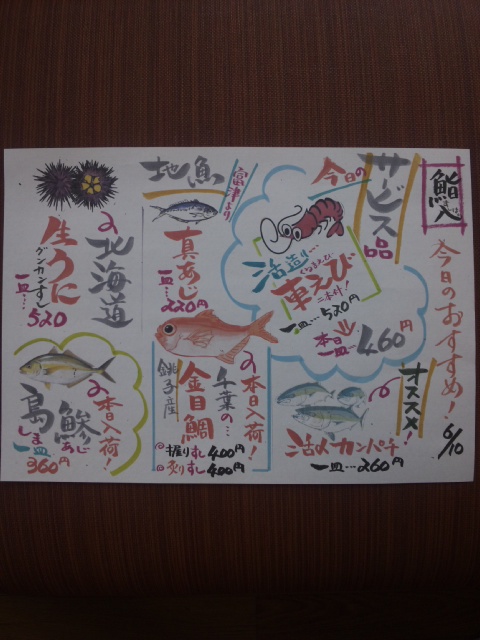 今日のおすすめ!
6/10
今日の
サービス品
活造り…
車えび
くるまえび
二本付!
一皿…520円
本日
一皿
460円
オススメ!
活〆カンパチ
一皿…260円
地魚
富津より
真あじ
一皿…220円
本日入荷!
千葉の…
金目鯛
銚子産
握りすし400円
炙りすし400円
北海道の
生うに
グンカンすし
一皿…520
本日入荷!
島鯵
しまあじ
一皿
360円